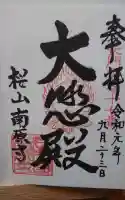 奉拝
令和元年
九月二十三日
大悲殿
桜山南藏寺